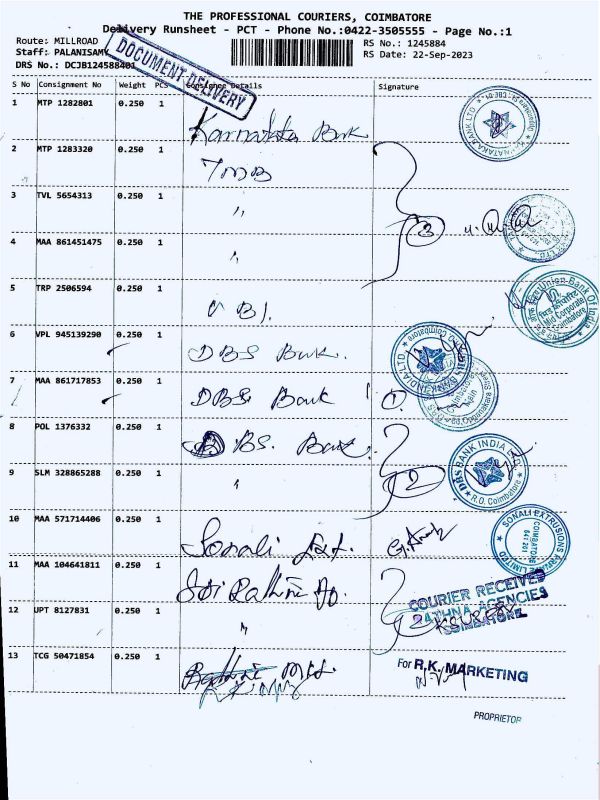 THE PROFESSIONAL COURIERS, COIMBATORE
Delivery Runsheet - PCT - Phone No.:0422-3505555 - Page No.:1
Route: MILLROAD
RS No.: 1245884
Staff: PALANISAMY
RS Date: 22-Sep-2023
DRS No.: DCJB124588401
DOCUMENT DELIVERY
S No Consignment No Weight PCS Consignee Details Signature
1 MTP 1282801 0.250 1 Karnataka Bank
2 MTP 1283320 0.250 1 TMB
3 TVL 5654313 0.250 1 "
4 MAA 861451475 0.250 1 "
3
5 TRP 2506594 0.250 1 UBI.
Union Bank Of India
Mid Corporate
Coimbatore
6 VPL 945139290 0.250 1 DBS Bank.
7 MAA 861717853 0.250 1 DBS Bank 1
8 POL 1376332 0.250 1 DBS. Bank.
9 SLM 328865288 0.250 1 "
2
DBS BANK INDIA LTD
R.O. Coimbatore
10 MAA 571714406 0.250 1 Sonali Ext.
SONALI EXTRUSIONS PRIVATE LIMITED
COIMBATORE
641 201
11 MAA 104641811 0.250 1 Sri Rathna Ag.
12 UPT 8127831 0.250 1 "
2
COURIER RECEIVED
RATHNA AGENCIES
COIMBATORE
13 TCG 50471854 0.250 1
For R.K. MARKETING
PROPRIETOR